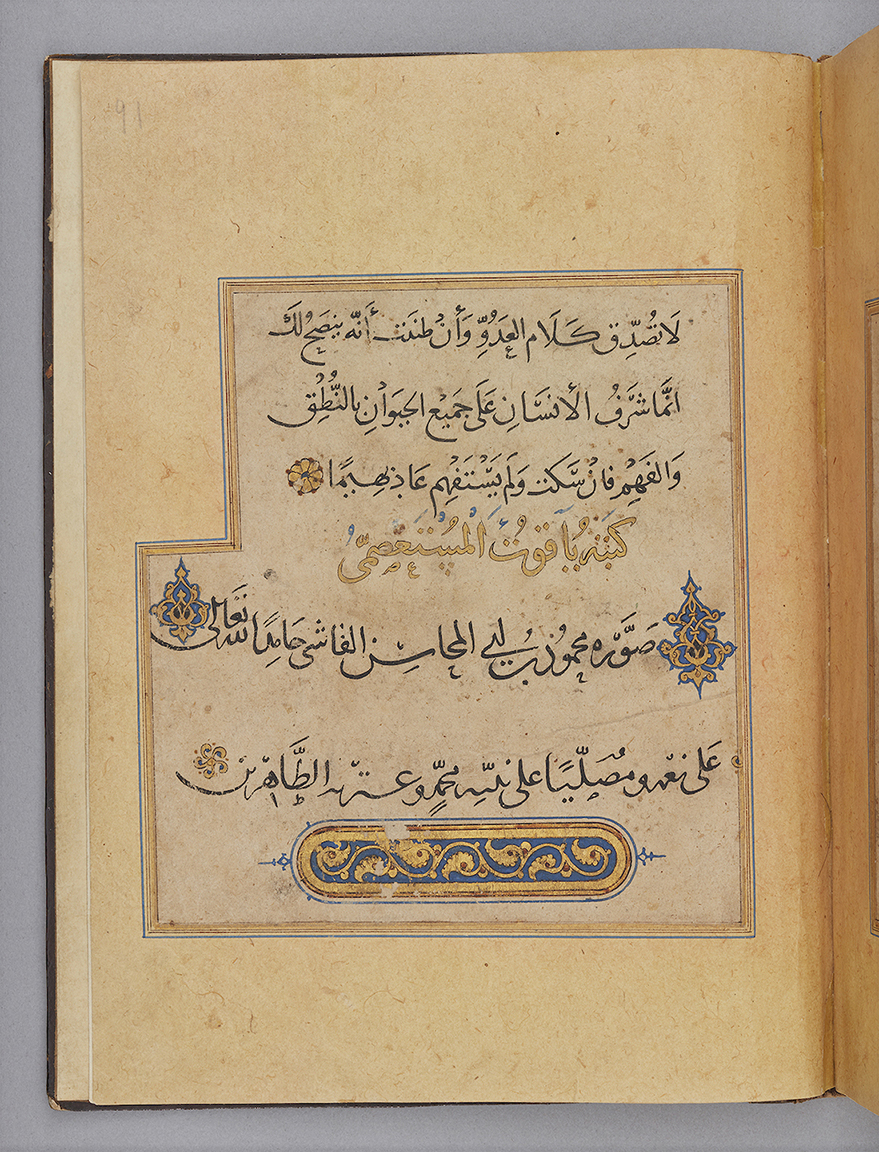 لَا تُصَدِّق كَلَام العَدُوِّ وَأَنْ ظننت أنّه ينصَح لَكَ
انَّمَا شَرَّفُ الأنسَانِ عَلَى جَمِيْع الحَيوَانِ بالنُّطْقِ
وَالفَهْمِ فانْ سَكت وَلَم يَسْتَفهِم عَاد بهيمًا
كتبَه يَاقوُتُ المسُتَعصِمىُّ
صَوَّره محموُد بن ابي المحاسِن القاشى حامِدًا لله تعَالى
عَلى نعمه ومُصَلّيًا على نبيّه محمّد وعترته الطَّاهرين